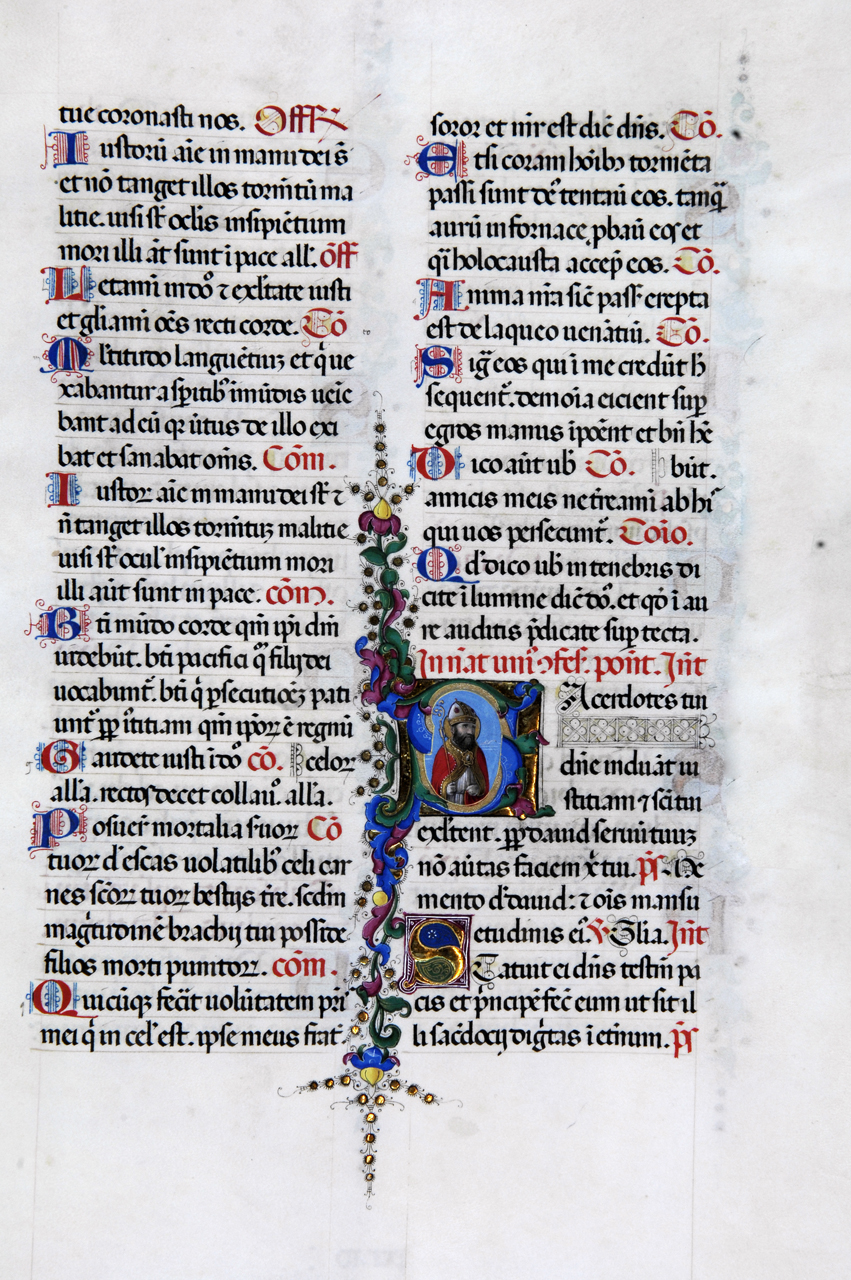 tue coronasti nos. Offr̃
Iustorũ aĩe in manu dei s̃
et nõ tanget illos tormẽtũ ma
litie. uisi sẽ oclis insipiẽtium
mori illi ãt sunt ĩ pace all̃. õff
Letamĩ in dõ ⁊ exl̃tate iusti
et gl̃iamĩ oẽs recti corde. Cõ
Ml̃titudo languẽtiuʒ et q̃ ue
xabantur a sp̃itib᾿ ĩmũdis ueĩe
bant ad eũ qꝛ ũtus de illo exi
bat et sanabat om̃s. Cõm.
Iustoꝝ aĩe in manu dei sẽ ⁊
ñ tanget illos tormẽtuʒ malitie
uisi sẽ ocul᾿ insipiẽtium mori
illi aũt sunt in pace. cõm.
Bti mũdo corde qm̃ ip̃i dm̃
uidebũt. bt̃i pacifici q̃ filij dei
uocabunt᷑. bt̃i q̃ ꝑsecutioẽʒ pati
unt᷑ ꝓp̃ iũstitiam qm̃ ip̃oꝝ ẽ regnũ
Gaudete iusti ĩ dõ cõ. celoꝝ
all̃a. rectos decet collaũ. all̃a.
Posuer̃ mortalia suoꝝ Cõ
tuoꝝ d᾿ escas uolatilib᾿ celi car
nes sc̃oꝝ tuoꝝ bestijs tr̃e. scd̃m
mag̃tudinẽ brachij tui posside
filios morti punitoꝝ. cõm.
Quicũqꝫ fec̃it uolũtatem pr̃i᾿
mei q̃ in cel᾿ est. ipse meus frat᷑
soror et mr̃ est dic̃ dñs. Cõ.
Etsi coram hõib᾿ tormẽta
passi sunt de᾿ tentaũ eos. tanq̃
aurũ in fornace ꝓbaũ eos et
q̃i holocausta accep̃ eos. Cõ.
Anima nr̃a sic̃ pass᾿ erepta
est de laqueo uenãtiũ. Cõ.
Sig̃ eos qui ĩ me credũt h᾿
sequent᷑. demoĩa eicient suꝑ
egros manus ĩpoẽnt et bñ hẽ
Dico aũt ub᾿ Cõ. bũt.
amicis meis ne tr̃eamĩ ab hi᾿
qui uos persecunt᷑. Coĩo.
Qd᾿ dico ub᾿ in tenebris di
cite ĩ lumine dic̃ dõ. et qõ ĩ au
re auditis p̃dicate suꝑ tecta.
In nãt uni᾿ ꝯfes᾿. pont. Int
Sacerdotes tui
dñe induãt iu
stitiam ⁊ sc̃i tui
exl̃tent. ꝓp̃ dauid seruũ tuuʒ
nõ auertas faciem xp̃i tui. p̃s. Me
mento d᾿ dauid: ⁊ oĩs mansu
etudinis ei᾿. V Gl̃ia. Int
Statuit ei dñs testm̃ pa
cis et p̃ncipẽ fec̃ eum ut sit il
li sac̃docij dig̃tas ĩ etnum. p̃s